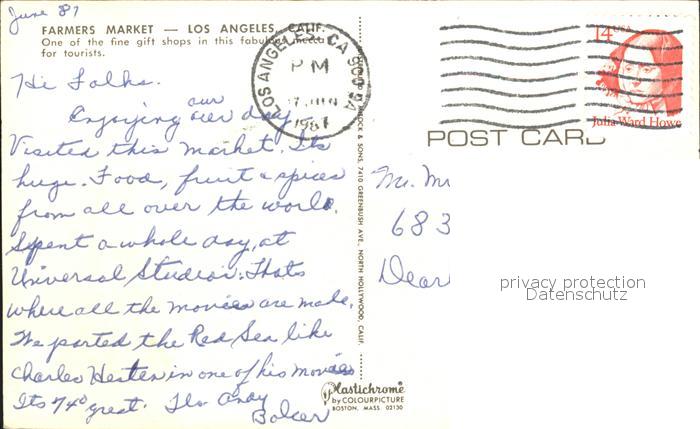 June 87
FARMERS MARKET — LOS ANGELES, CALIF.
One of the fine gift shops in this fabulous mecca
for tourists.
Hi Folks.
Enjoying our day.
Visited this market. Its
huge. Food, fruit & spices
from all over the world.
Spent a whole day at
Universal Studios. Thats
where all the movies are made.
We parted the Red Sea like
Charles Heston in one of his movies
Its 74° great. Flo Andy
Bolcer
LOS ANGELES, CA
PM
JUN
1987
& SONS, 7410 GREENBUSH AVE., NORTH HOLLYWOOD, CALIF.
Plastichrome
by COLOURPICTURE
BOSTON, MASS. 02130
14 USA
Julia Ward Howe
POST CARD
Mr. Mr
683
Dear
privacy protection
Datenschutz